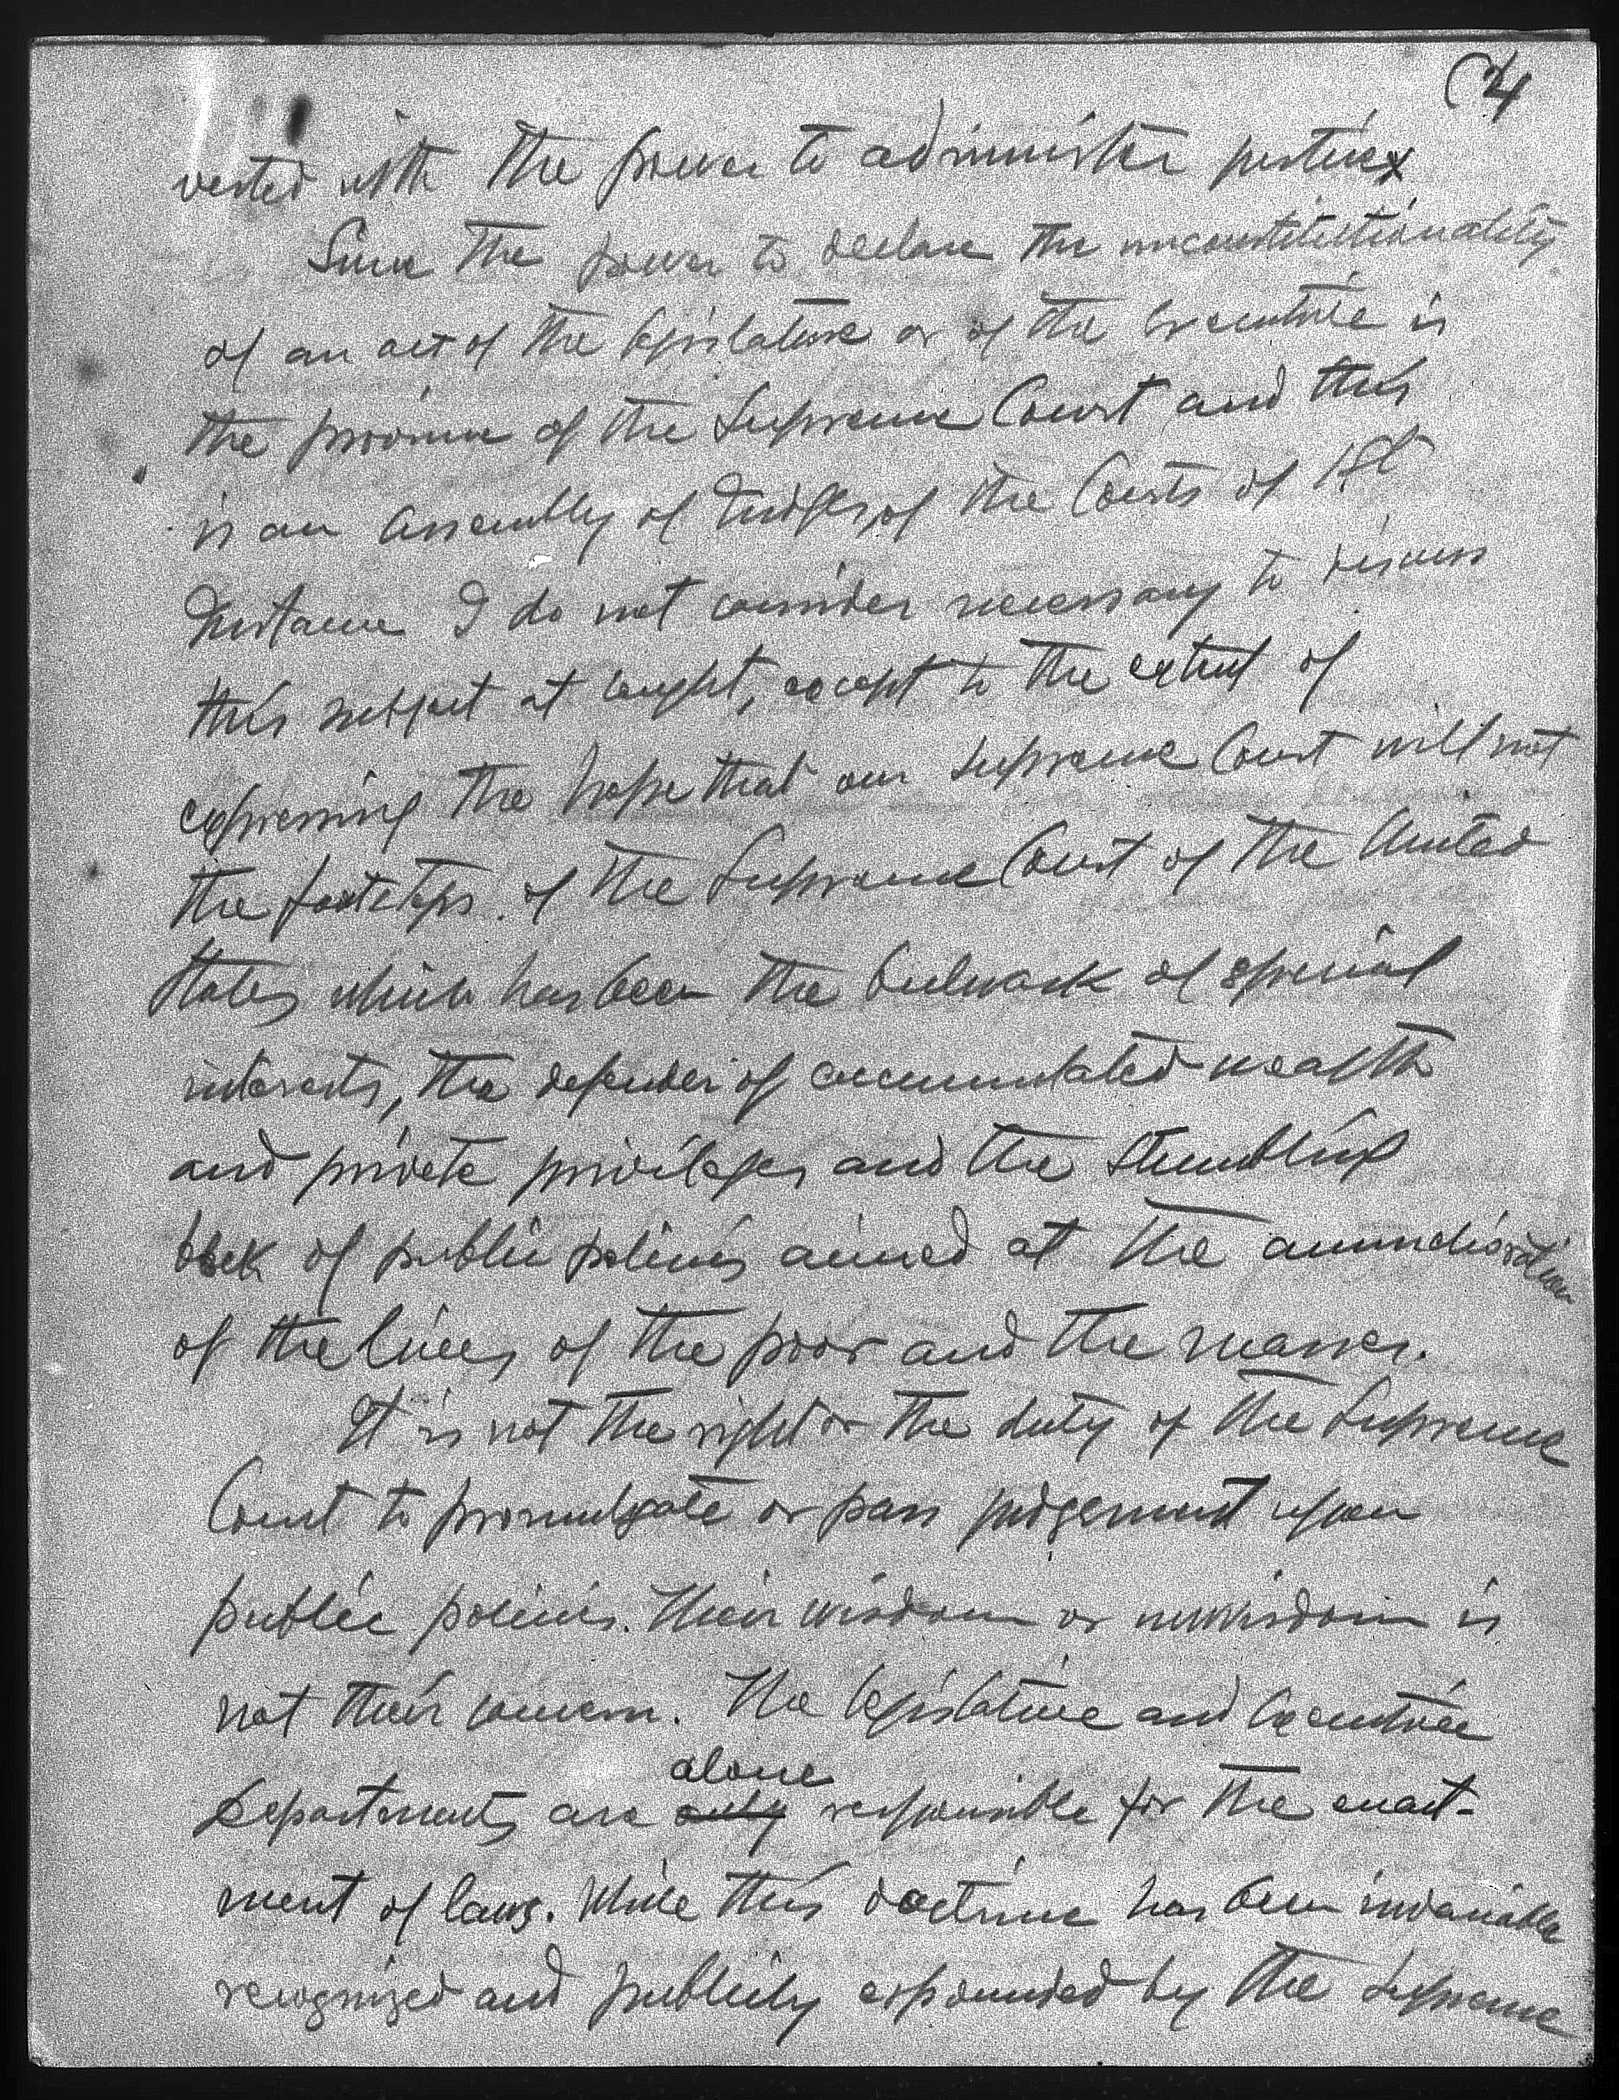 (4
vested with the power to administer justice
Since the power to declare the unconstitutionality
of an act of the legislature or of the Executive is
the province of the Supreme Court and this
is an Assembly of Judges of the Courts of 1st
Instance I do not consider necessary to discuss
this subject at lenght, except to the extent of
expressing the hope that our Supreme Court will not
the footsteps of the Supreme Court of the United
States which has been the bulwark of special
interests, the defender of accumulated wealth
and private privileges and the stumbling
block of public policies aimed at the ammelioration
of the lives of the poor and the masses.
It is not the right or the duty of the Supreme
Court to promulgate or pass judgement upon
public policies. Their wisdom or unwisdom is
not their concern. The legislative and Executive
alone
Departments are only responsible for the enact-
ment of laws. While this doctrine has been invariable
recognized and publicly expounded by the Supreme